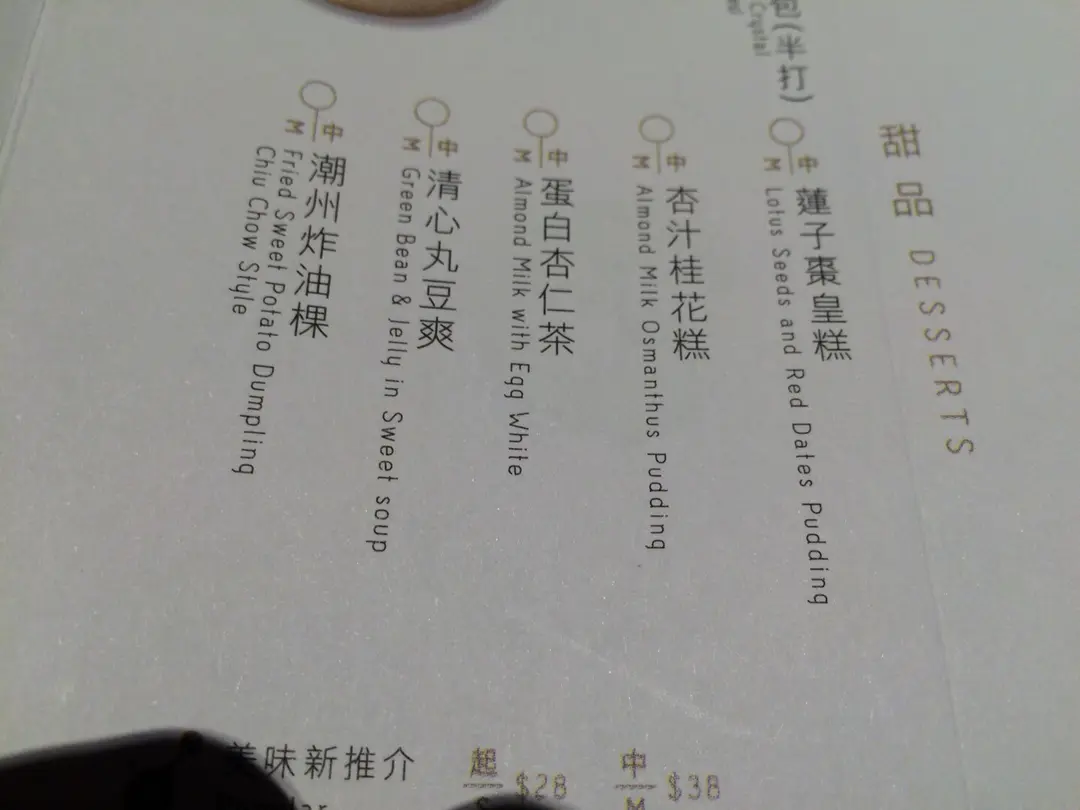 甜品 DESSERTS
中
M
蓮子棗皇糕
Lotus Seeds and Red Dates Pudding
中
M
杏汁桂花糕
Almond Milk Osmanthus Pudding
中
M
蛋白杏仁茶
Almond Milk with Egg White
中
M
清心丸豆爽
Green Bean & Jelly in Sweet soup
中
M
潮州炸油粿
Fried Sweet Potato Dumpling
Chiu Chow Style
包(半打)
Crystal
美味新推介
起 $28
中
M $38